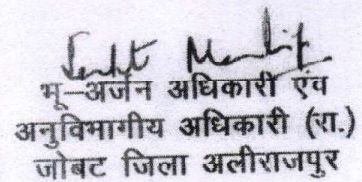 भू–अर्जन अधिकारी एंव
अनुविभागीय अधिकारी (रा.)
जोबट जिला अलीराजपुर